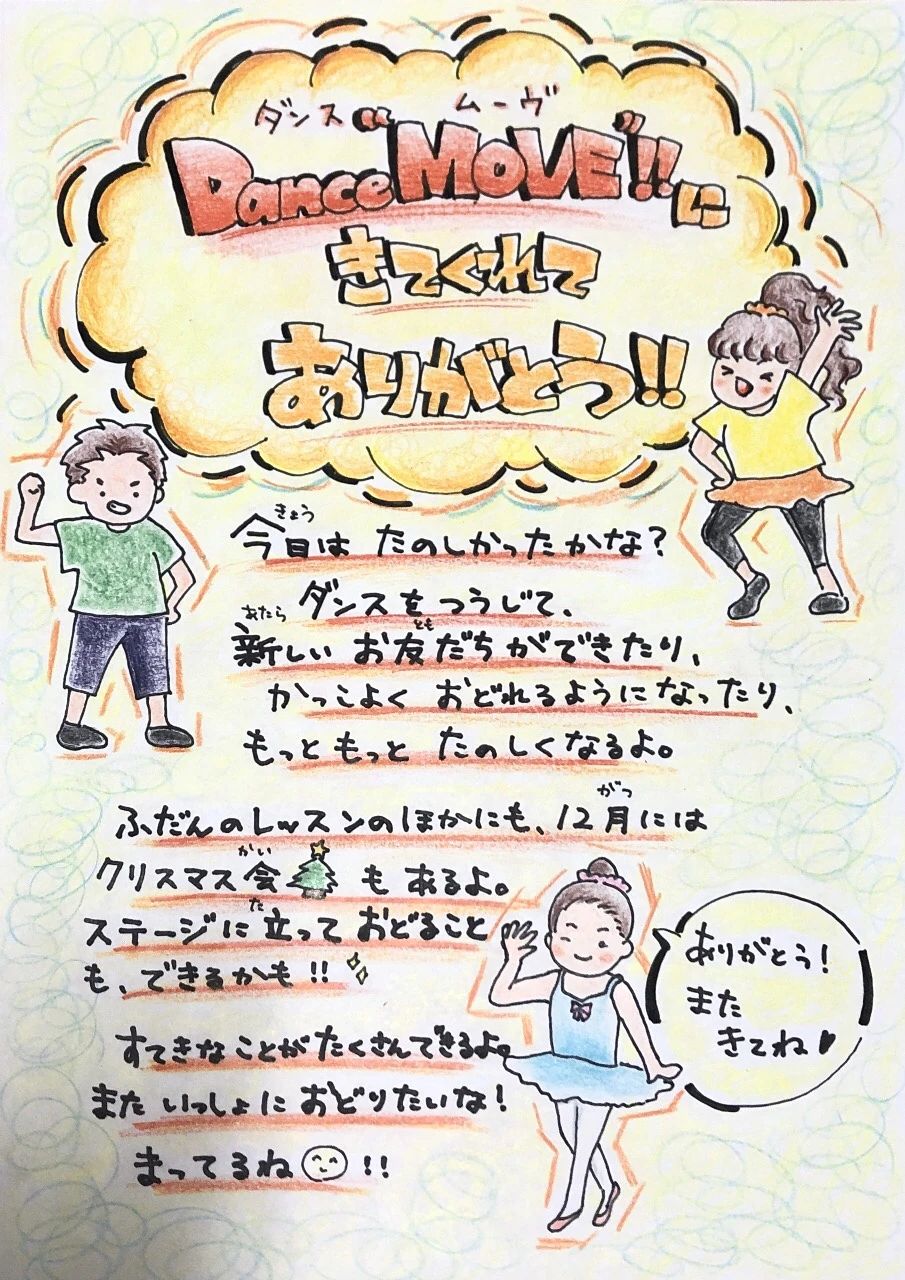 ダンス ムーヴ
Dance "MOVE"!!に
きてくれて
ありがとう!!
きょう
今日は たのしかったかな?
ダンスをつうじて、
あたら とも
新しい お友だちができたり、
かっこよく おどれるようになったり、
もっともっと たのしくなるよ。
がつ
ふだんのレッスンのほかにも、12月には
かい
クリスマス会🎄も あるよ。
た
ステージに立って おどること
も、できるかも!!✨
すてきなことがたくさんできるよ。
また いっしょに おどりたいな!
まってるね😊!!
ありがとう!
また
きてね♥